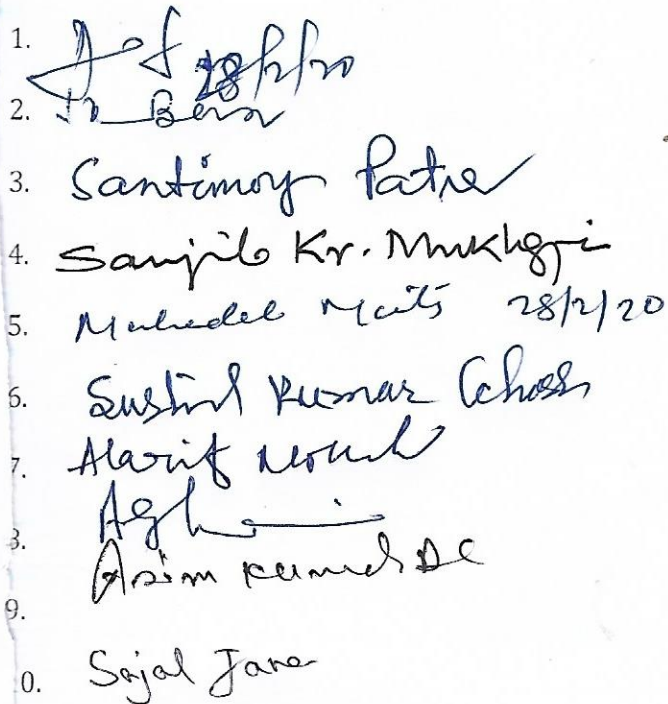 1. 28/2/20
2. Bera
3. Santimoy Patra
4. Sanjib Kr. Mukherji
5. Mahadeb Maiti 28/2/20
6. Sushil Kumar Ghosh
7. Alarif
8.
Asim Kumar De
9.
0. Sajal Jana